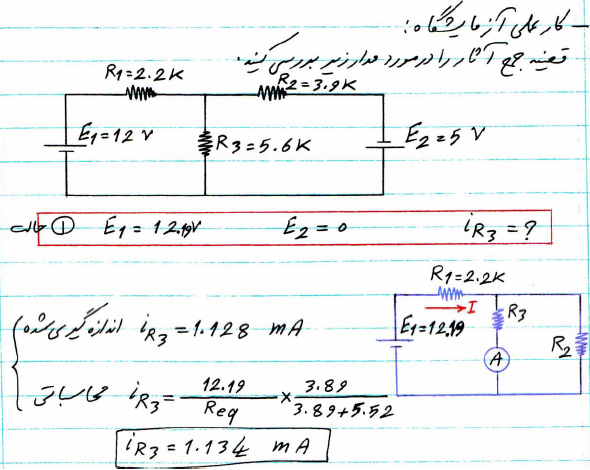 - کار عملی آزمایشگاه:
قضیه جمع آثار را در مورد مدار زیر بررسی کنید.
R1=2.2K
R2=3.9K
E1=12 V
R3=5.6K
E2=5 V
حالت ① E1=12.19V E2=0 iR3=?
R1=2.2K
I
E1=12.19
R3
A
R2
اندازه گیری شده iR3=1.128 mA
محاسباتی iR3= 12.19/Req × 3.89/3.89+5.52
iR3=1.134 mA